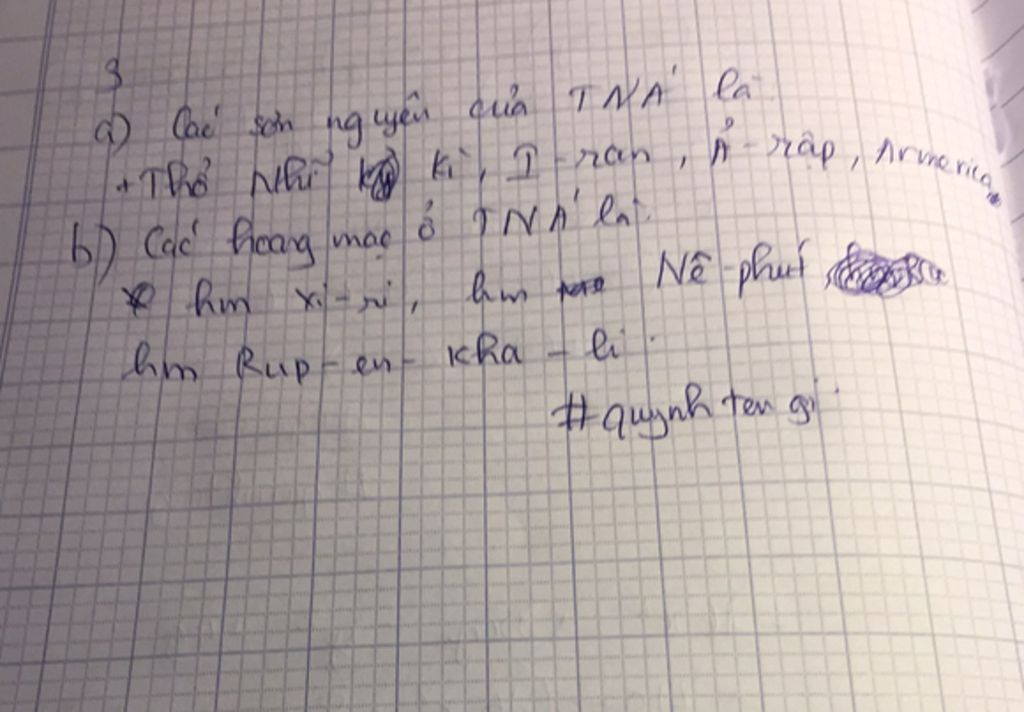 3
a) Các sơn nguyên của TNÁ là
+ Thổ Nhĩ Kì, I-ran, Ả-rập, Armerica
b) Các hoang mạc ở TNÁ là:
hm xi-ri, hm Nê-phut
hm Rup-en-kha-li.
#quynh ten gi